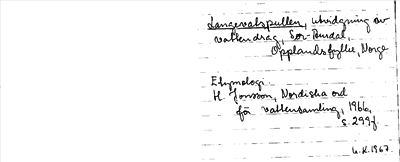 Langevatspullen, utvidgning av
vattendrag, Sør-Aurdal,
Opplandsfylke, Norge
Etymologi
H. Jonsson, Nordiska ord
för vattensamling, 1966,
s. 299f.
U.K. 1967.